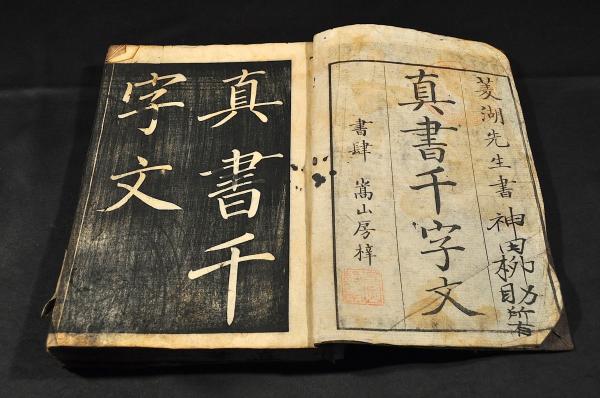 菱湖先生書
神田
所有
真書千字文
書肆 嵩山房梓
真書千
字文